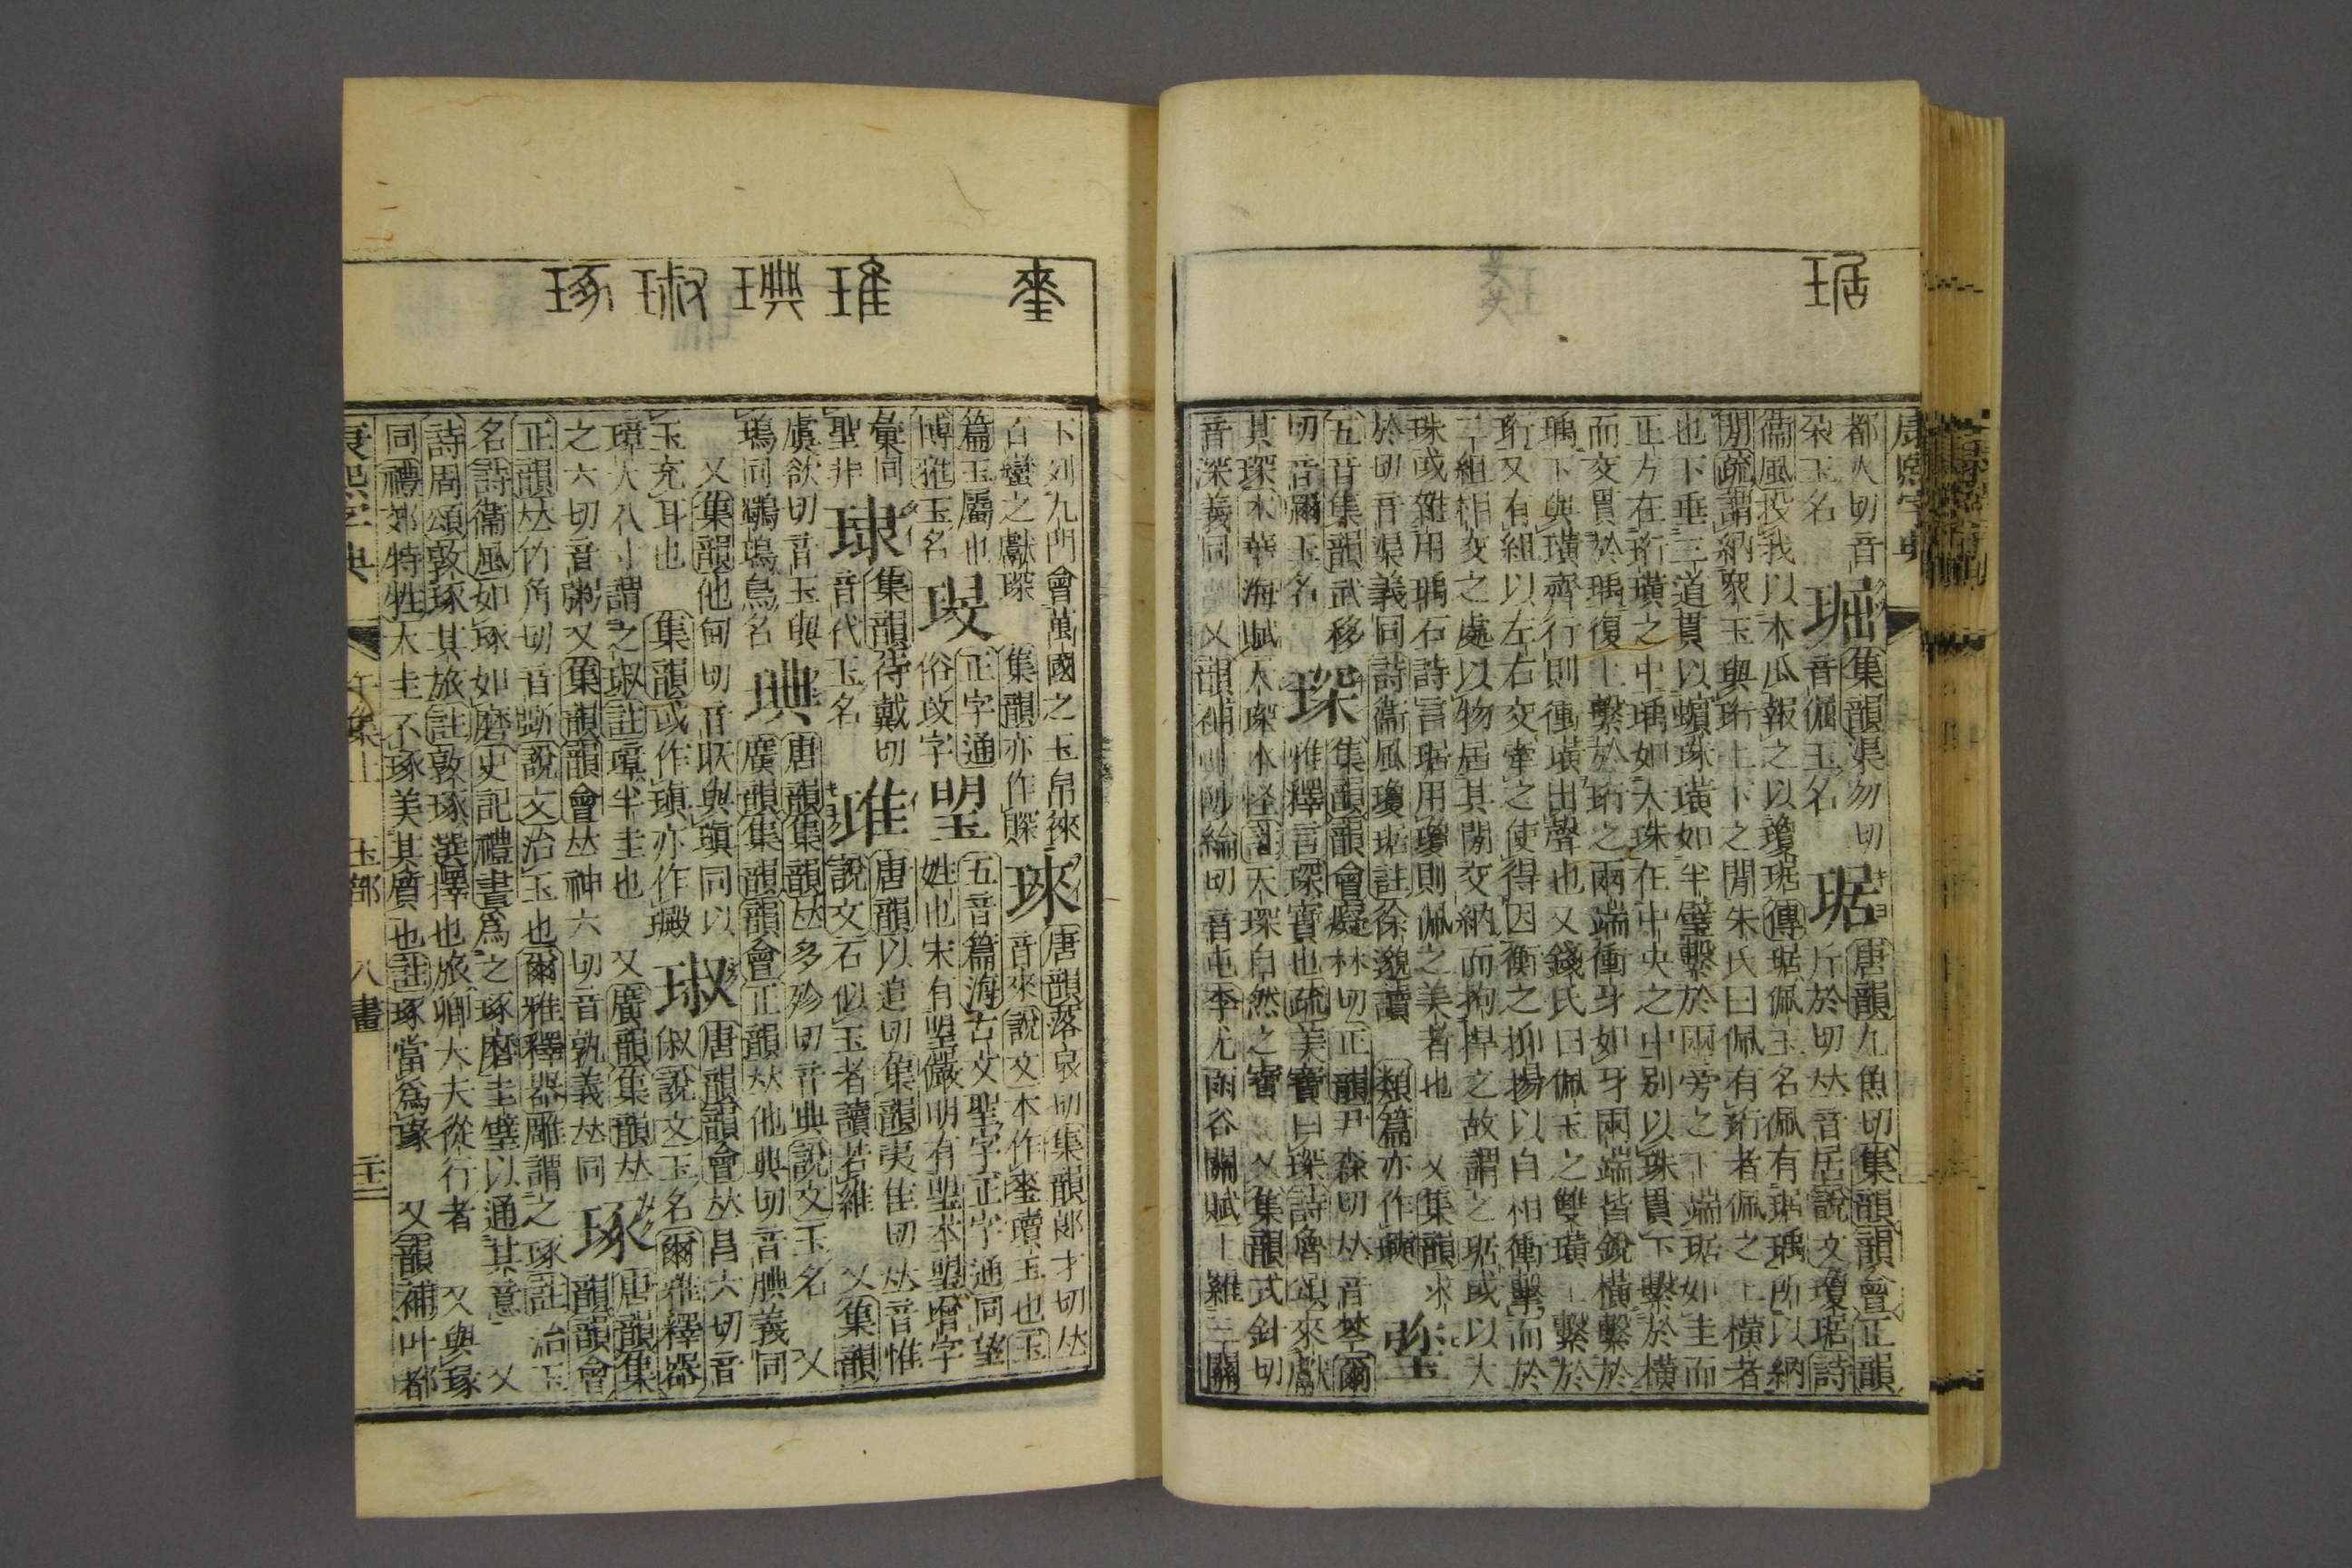 琚
康熙字典
都火切音集韻渠勿切琚唐韻九魚切集韻韻會正韻
朶玉名音倔玉名斤於切𠀤音居說文瓊琚詩
衞風投我以木瓜報之以瓊琚傳琚佩玉名佩有琚瑀所以納
閒疏謂納衆玉與珩上下之閒朱氏曰佩有珩者佩之上橫者
也下垂三道貫以蠙珠璜如半璧繫於兩旁之下端琚如圭而
正方在珩璜之中瑀如大珠在中央之中別以珠貫下繫於橫
而交貫於瑀復上繫於珩之兩端衝牙如牙兩端皆銳橫繫於
瑀下與璜齊行則衝璜出聲也又錢氏曰佩玉之雙璜上繫於
珩又有組以左右交牽之使得因衡之抑揚以自相衝擊而於
二組相交之處以物居其閒交納而拘捍之故謂之琚或以大
珠或雜用瑀石詩言琚用瓊則佩之美者也 又集韻求
於切音渠義同詩衞風瓊琚註徐邈讀 類篇亦作
五音集韻武移琛集韻韻會癡林切正韻尹森切𠀤音棽爾
切音彌玉名雅釋言琛寶也疏美寶曰琛詩魯頌來獻
其琛木華海賦天琛水怪註天琛自然之寶 又集韻式針切
音深義同 又韻補叶陟綸切音屯李尤函谷關賦上維三關
琜 琟 琠 琡 琢
下列九門會萬國之玉帛徠琜唐韻落哀切集韻郞才切𠀤
百蠻之獻琛 集韻亦作賝音來說文本作琜瓄玉也玉
篇玉屬也正字通朢五音篇海古文聖字正字通同望
博雅玉名俗玟字姓也宋有朢儼明有朢本朢暦字
彙同琭集韻待戴切琟唐韻以追切集韻夷隹切𠀤音惟
聖非音代玉名說文石似玉者讀若維 又集韻
虞欲切音玉與琠唐韻集韻𠀤多殄切音典說文玉名 又
鳿同鸀鳿鳥名廣韻集韻韻會正韻𠀤他典切音腆義同
又集韻他甸切音瑱與瑱同以琡唐韻韻會𠀤昌六切音
玉充耳也 集韻或作瑱亦作俶說文玉名爾雅釋器
璋大八寸謂之琡註璋半圭也 又廣韻集韻𠀤琢唐韻集
之六切音粥又集韻韻會𠀤神六切音孰義𠀤同韻韻會
正韻𠀤竹角切音斲說文治玉也爾雅釋器雕謂之琢註治玉
名詩衞風如琢如磨史記禮書爲之琢磨圭璧以通其意 又
詩周頌敦琢其旅註敦琢選擇也旅卿大夫從行者 又與瑑
同禮郊特牲大圭不琢美其質也註琢當爲瑑 又韻補叶都
康熙字典 午集上 玉部 八畫